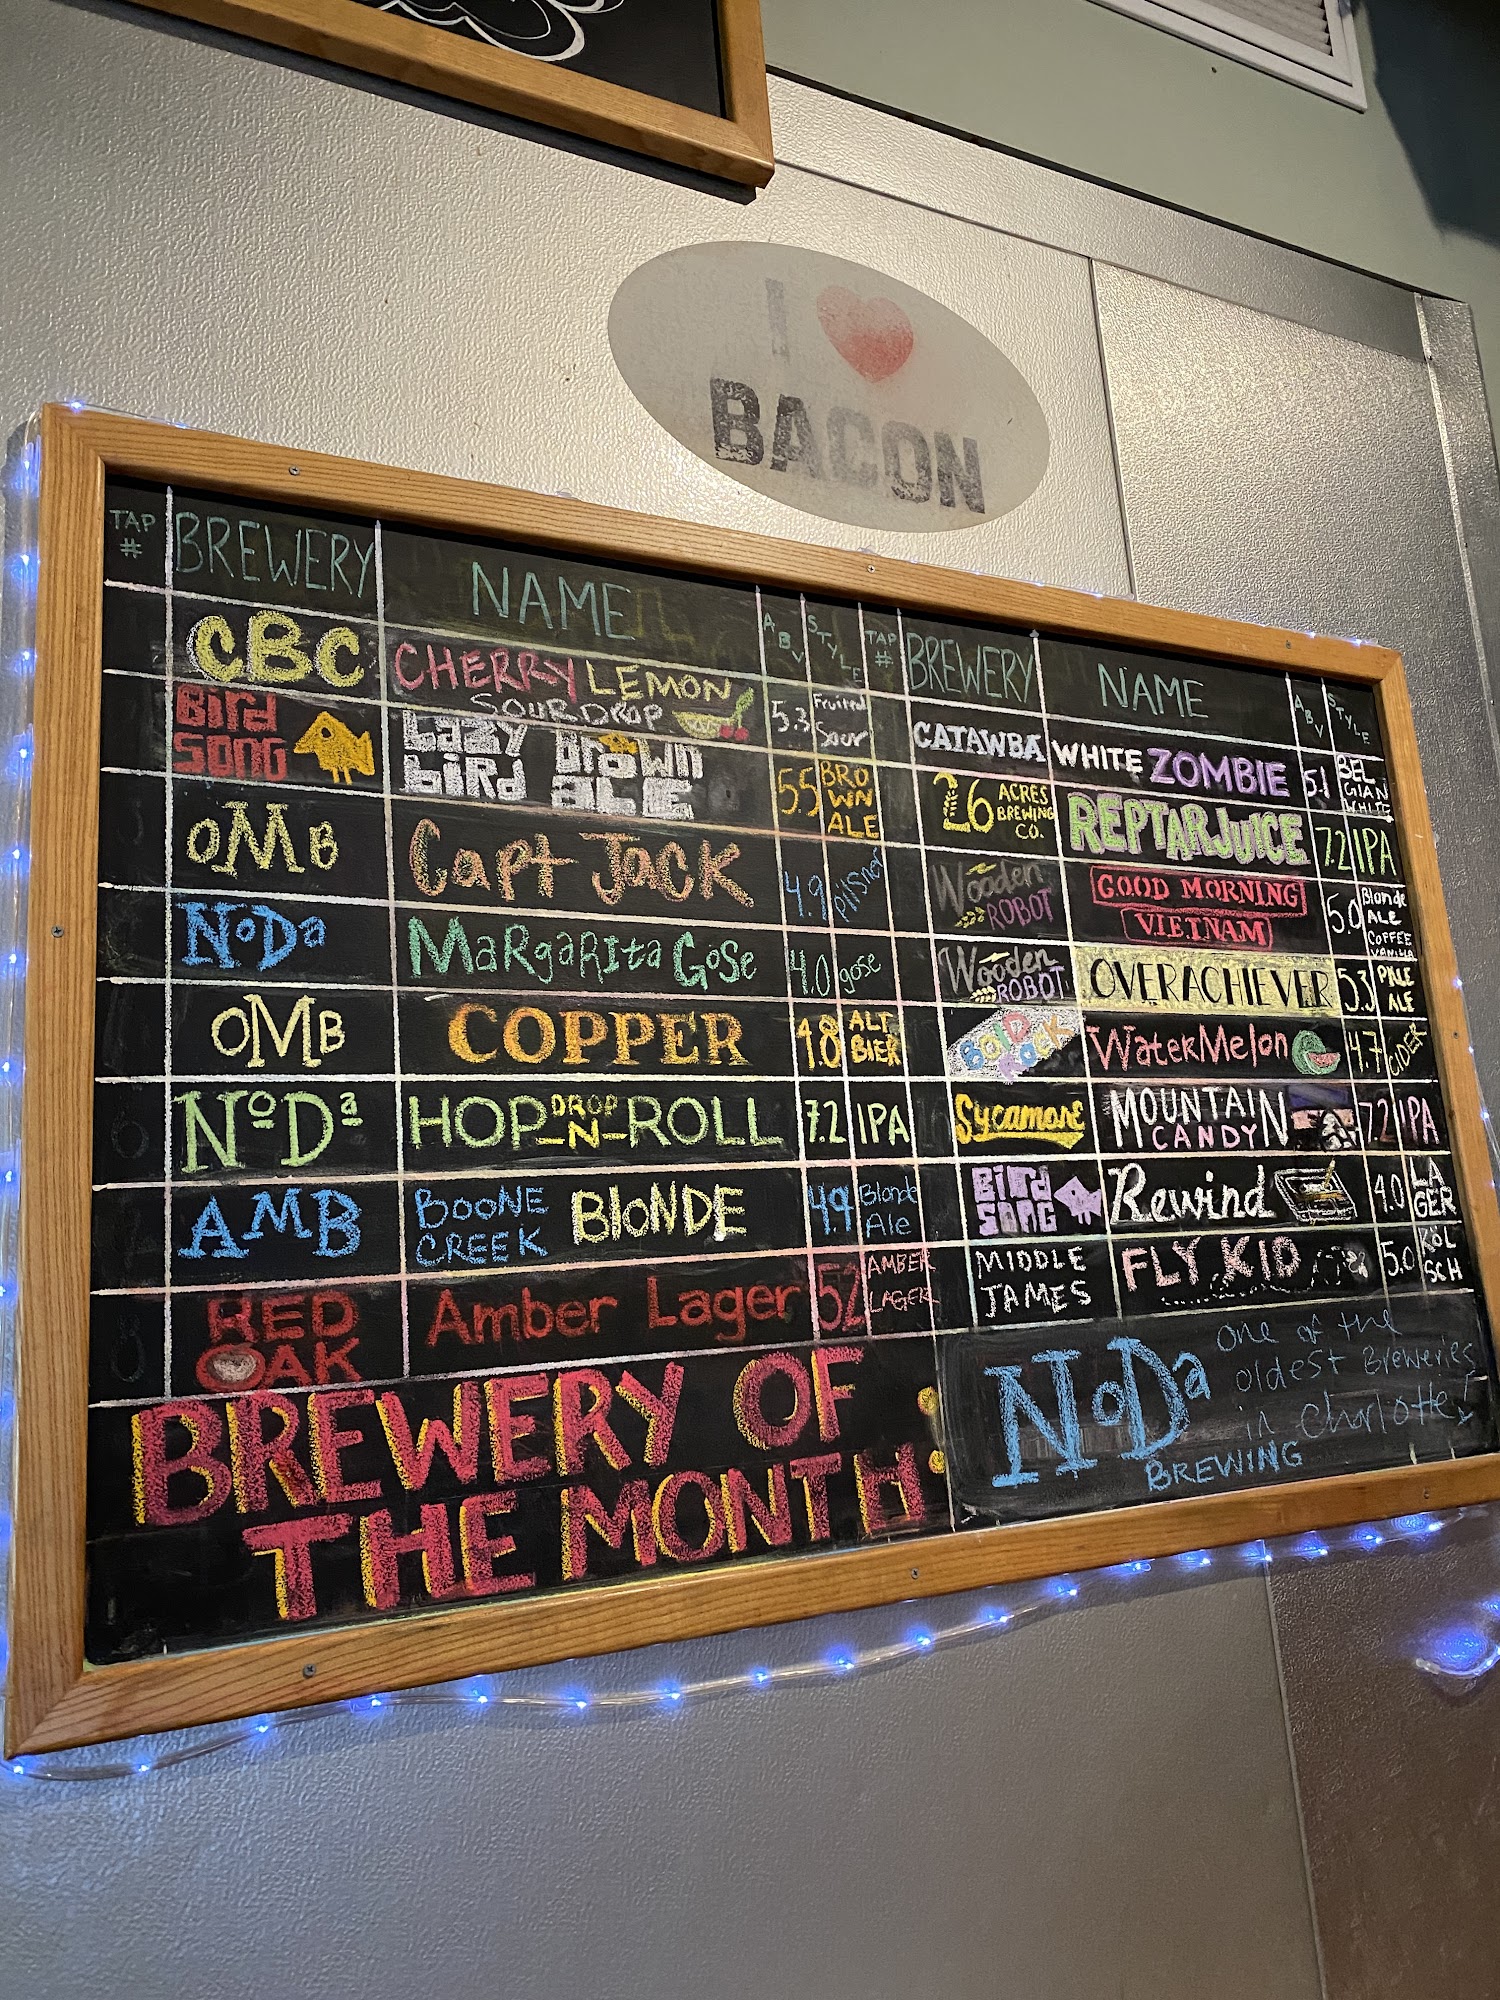 I ❤ BACON
TAP # BREWERY NAME ABV STYLE
CBC CHERRY LEMON SOUR DROP 5.3 Fruited Sour
Bird SONG Lazy bird brown ALE 5.5 BROWN ALE
OMB Capt JACK 4.9 Pilsner
NoDa MaRgaRita GoSe 4.0 gose
OMB COPPER 4.8 ALT BIER
NoDa HOP DROP -N- ROLL 7.2 IPA
AMB BOONE CREEK BlONDE 4.9 Blonde Ale
RED OAK Amber Lager 5.2 AMBER LAGER
TAP # BREWERY NAME ABV STYLE
CATAWBA WHITE ZOMBIE 5.1 BELGIAN WHITE
26 ACRES BREWING CO. REPTAR JUICE 7.2 IPA
Wooden ROBOT GOOD MORNING VIETNAM 5.0 Blonde ALE COFFEE VANILLA
Wooden ROBOT OVERACHIEVER 5.3 PALE ALE
BOLD ROCK WaterMelon 4.7 CIDER
Sycamore MOUNTAIN CANDY 7.2 IPA
Bird SONG Rewind 4.0 LAGER
MIDDLE JAMES FLY KID 5.0 KÖLSCH
BREWERY OF
THE MONTH:
NoDa BREWING
one of the
oldest Breweries
in Charlotte!